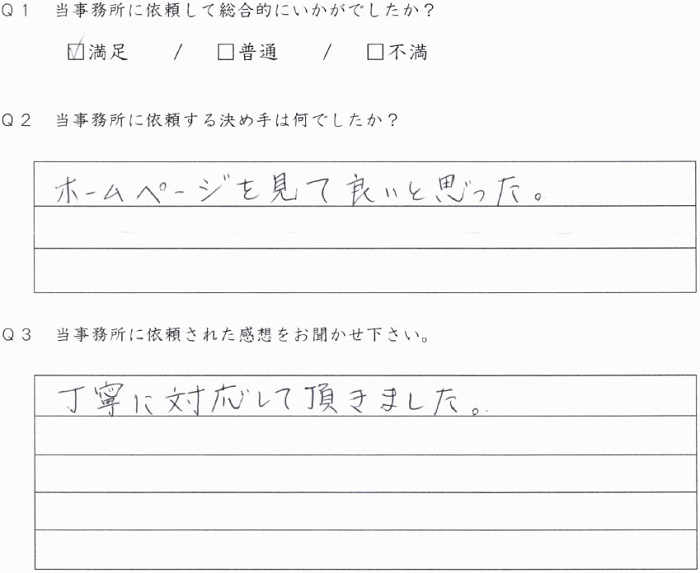 Q1 当事務所に依頼して総合的にいかがでしたか？
☑満足 / □普通 / □不満
Q2 当事務所に依頼する決め手は何でしたか？
ホームページを見て良いと思った。
Q3 当事務所に依頼された感想をお聞かせ下さい。
丁寧に対応して頂きました。